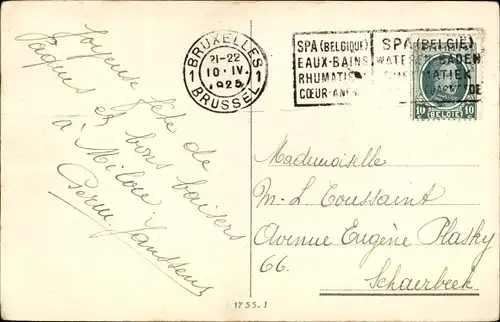 Joyeuse fête de
Pâques et bons baisers
à Milou
Germ. Janssens
BRUXELLES
21-22
10·IV
1925
1 1
BRUSSEL
SPA (BELGIQUE)
EAUX-BAINS
RHUMATIS
CŒUR-
SPA (BELGIË)
WATERS BADEN
10 BELGIË 10
Mademoiselle
M-L Toussaint
Avenue Eugène Plasky
66.
Schaerbeek
1755.1